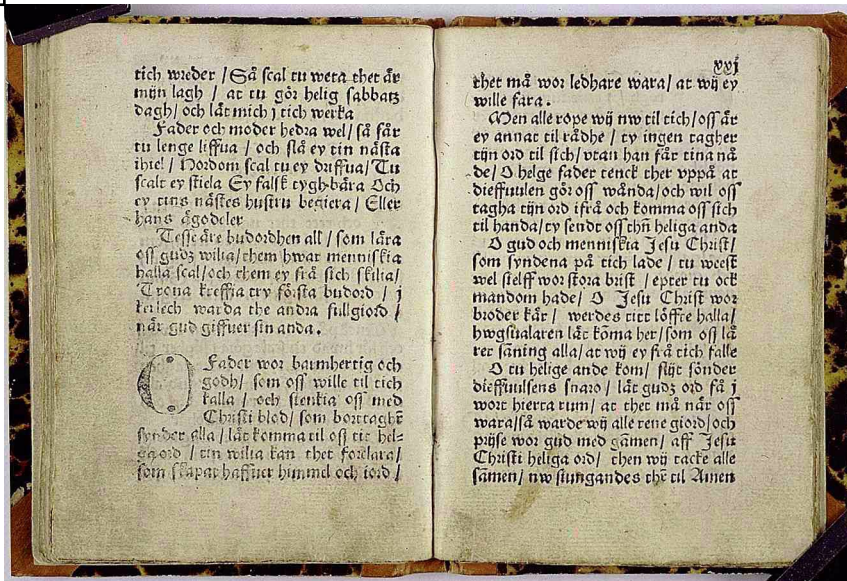 tich wreder / Så scal tu weta thet är
mijn lagh / at tu gör helig sabbatz
dagh / och lät mich j tich werka
Fader och moder hedra wel / så får
tu lenge liffua / och slå ey tin nästa
ihiel / Hordom scal tu ey driffua / Tu
scalt ey stiela Ey falsk tygh bära Och
ey tins nästes hustru begiera / Eller
hans ägodeler
Tesse äre budordhen all / som lära
oss gudz wilia / them hwar menniskia
halla scal / och them ey frå sich skilia /
Trona kreffia try första budord / j
kerlech warda the andra fullgiord /
när gud giffuer sin anda .
O Fader wor barmhertig och
godh / som oss wille til tich
kalla / och stenkia oss med
Christi blod / som borttaghr̄
synder alla / lät komma til oss tit hel=
ga ord / tin wilia kan thet forclara /
som skapat haffuer himmel och iord /
xxj
thet må wor ledhare wara / at wij ey
wille fara .
Men alle rope wij nw til tich / oss är
ey annat til rådhe / ty ingen tagher
tijn ord til sich / vtan han får tina nå
de / O helge fader tenck ther vppå at
dieffuulen gör oss wånda / och wil oss
tagha tijn ord ifrå och komma oss sich
til handa / ty sendt oss thn̄ heliga anda
O gud och menniskia Jesu Christ /
som syndena på tich lade / tu weest
wel stelff wor stora brist / epter tu ock
mandom hade / O Jesu Christ wor
broder kär / werdes titt löffte halla /
hwgsualaren lät kōma her / som oss lä
rer sāning alla / at wij ey frå tich falle
O tu helige ande kom / slijt sönder
dieffuulsens snaro / lät gudz ord få j
wort hierta rum / at thet må när oss
wara / så warde wij alle rene giord / och
prijse wor gud med gāmen / aff Jesu
Christi heliga ord / then wij tacke alle
sāmen / nw siungandes thr̄ til Amen